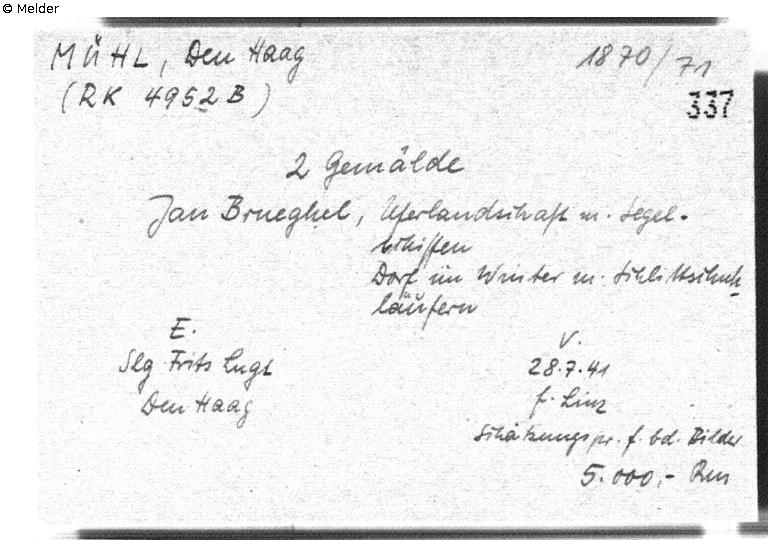 © Melder
MÜHL, Den Haag
1870/71
(RK 4952 B)
337
2 Gemälde
Jan Brueghel, Uferlandschaft m. Segel-
schiffen
Dorf im Winter m. Schlittschuh-
läufern
E.
Slg Frits Lugt
Den Haag
V.
28.7.41
f. Linz
Schätzungspr. f. bd. Bilder
5.000,- Rm